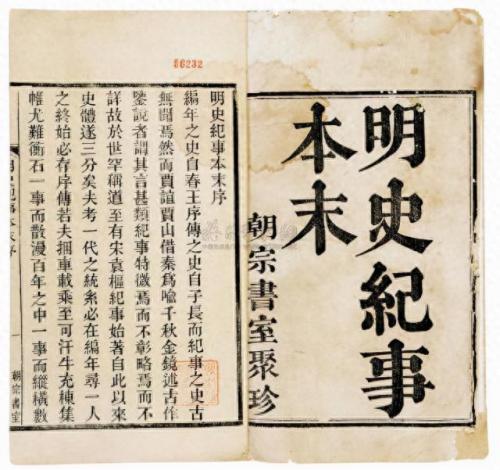 明史紀事
本末
朝宗書室聚珍
86232
明史紀事本末序
編年之史自春王序傳之史自子長而紀事之史古
無聞焉然而賈誼賈山借秦爲喻千秋金鏡述古作
鑒說者謂其言甚類紀事特微焉而不彰略焉而不
詳故於世罕稱道至有宋袁樞紀事始著自此以來
史體遂三分矣夫考一代之統系必在編年尋一人
之終始必存序傳若夫捆車載乘至可汗牛充棟集
帷尤難衡石一事而散漫百年之中一事而縱橫數
明史紀事本末序
一
朝宗書室